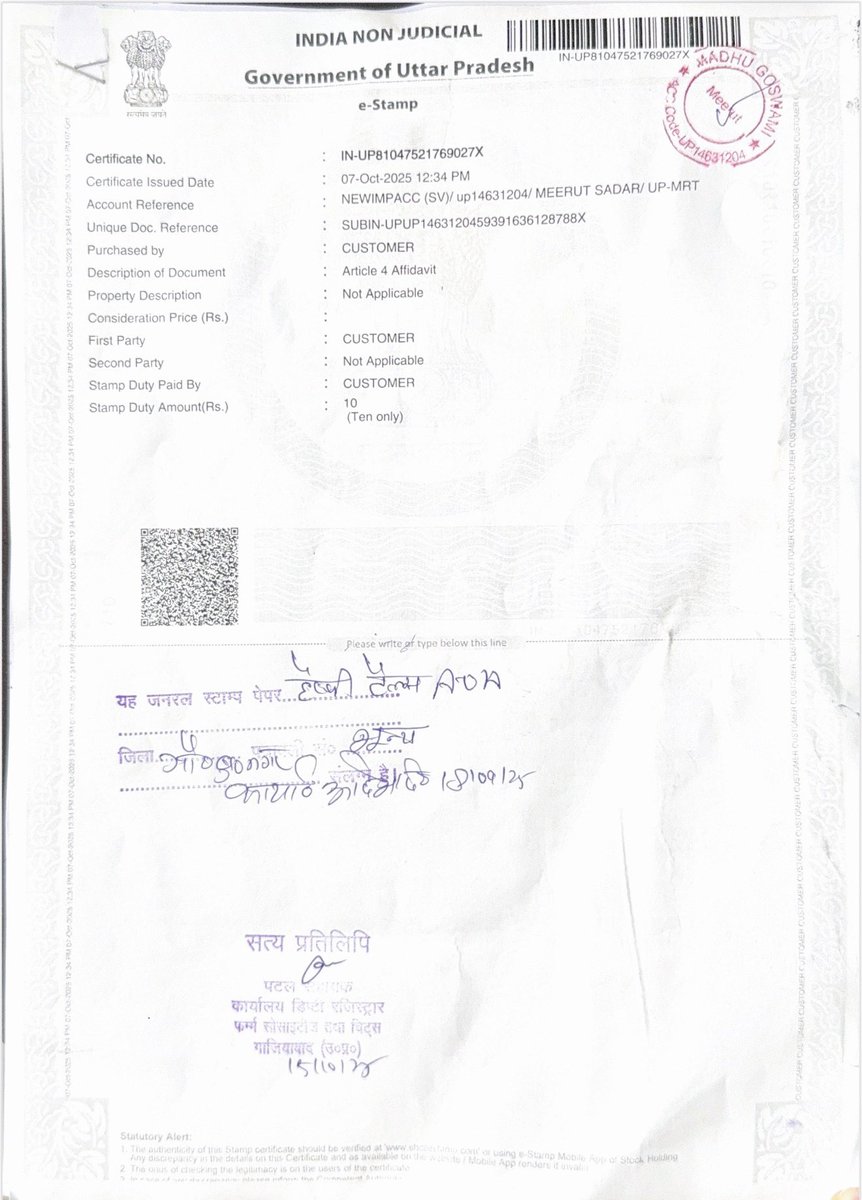 INDIA NON JUDICIAL
IN-UP81047521769027X
Government of Uttar Pradesh
e-Stamp
सत्यमेव जयते
MADHU GOSWAMI
Meerut
ACC Code-UP14631204
Certificate No. : IN-UP81047521769027X
Certificate Issued Date : 07-Oct-2025 12:34 PM
Account Reference : NEWIMPACC (SV)/ up14631204/ MEERUT SADAR/ UP-MRT
Unique Doc. Reference : SUBIN-UPUP1463120459391636128788X
Purchased by : CUSTOMER
Description of Document : Article 4 Affidavit
Property Description : Not Applicable
Consideration Price (Rs.) :
First Party : CUSTOMER
Second Party : Not Applicable
Stamp Duty Paid By : CUSTOMER
Stamp Duty Amount(Rs.) : 10
(Ten only)
Please write or type below this line
यह जनरल स्टाम्प पेपर... AOA
जिला...
संलग्न है।
18/09/25
सत्य प्रतिलिपि
पटल
कार्यालय डिप्टी रजिस्ट्रार
फर्म्स सोसाइटीज तथा चिट्स
गाजियाबाद (उ०प्र०)
15/10/25
Statutory Alert:
1. The authenticity of this Stamp certificate should be verified at or using e-Stamp Mobile App of Stock Holding
Any discrepancy in the details on this Certificate and as available on the website / Mobile App renders it invalid
2. The onus of checking the legitimacy is on the users of the certificate